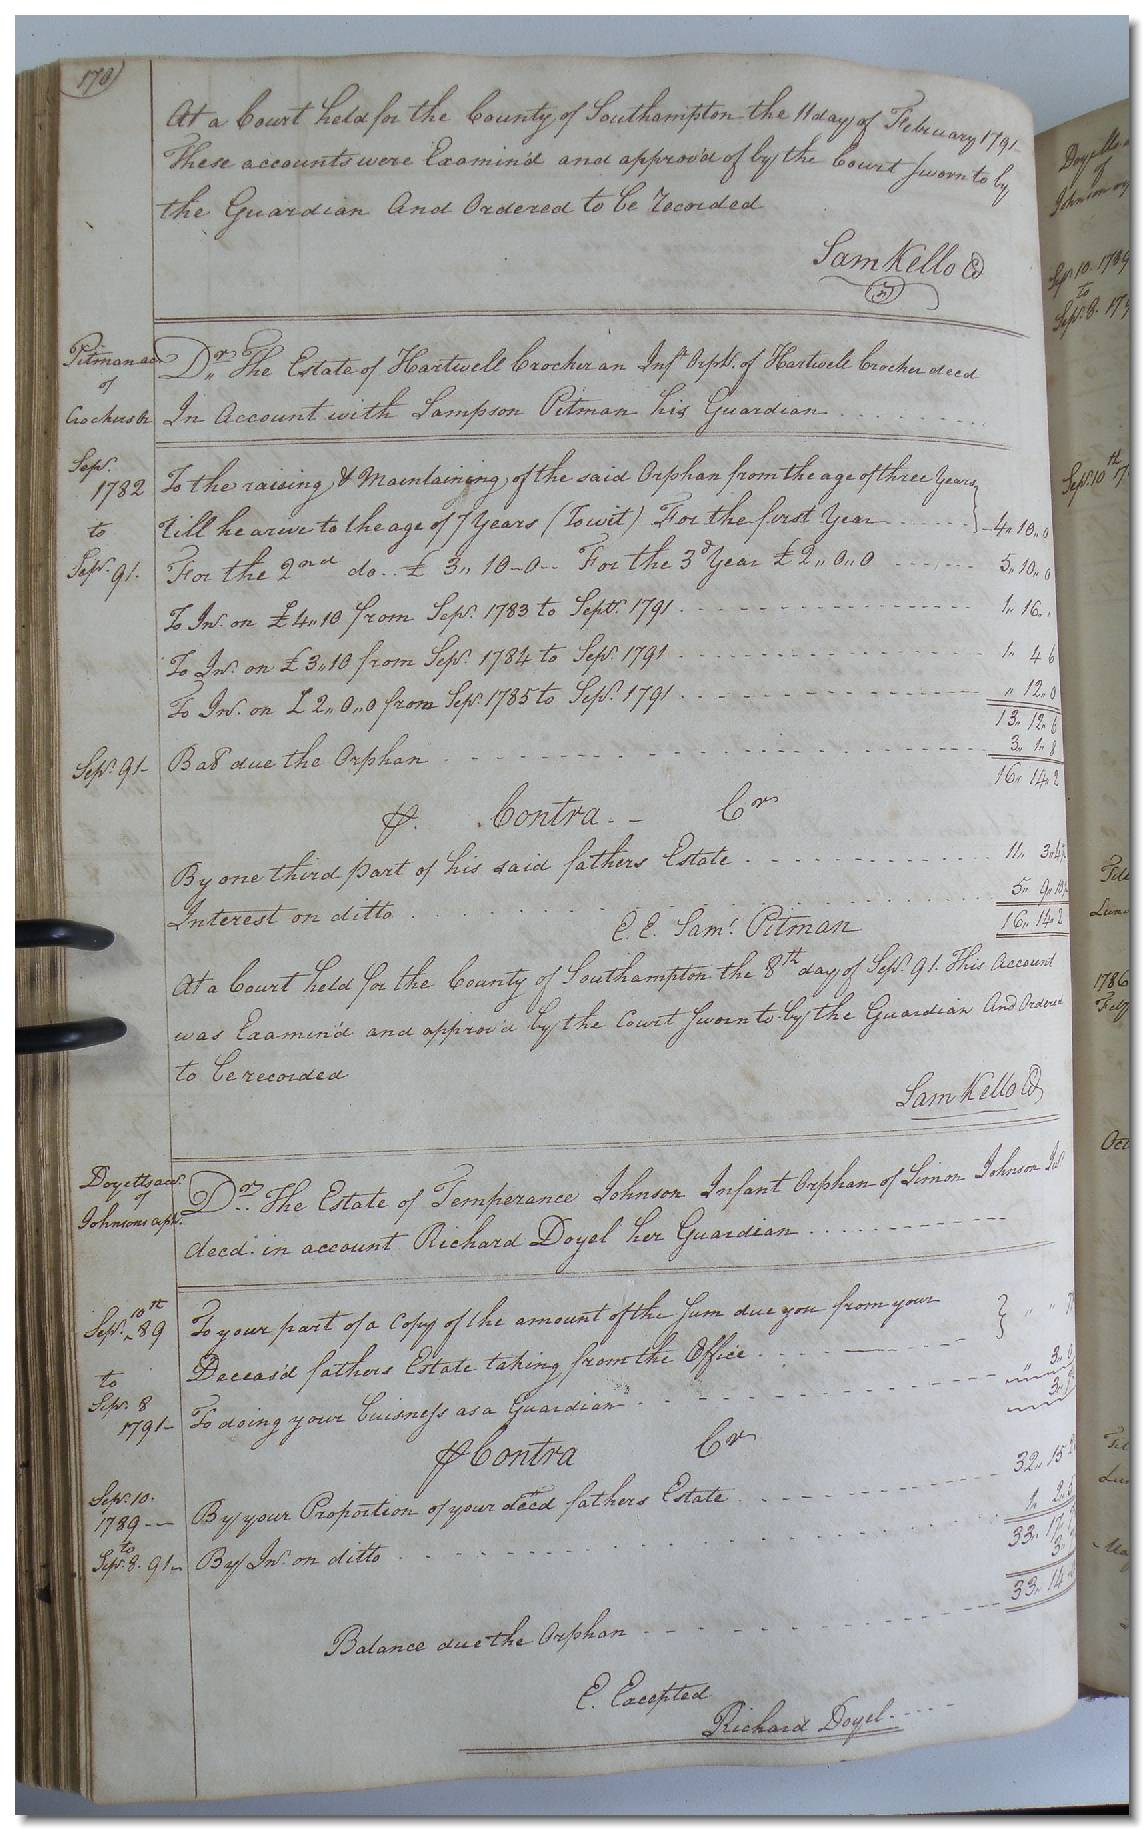 170
At a Court held for the County of Southampton the 11 day of February 1791
These accounts were Examin'd and approv'd of by the Court Sworn to by
the Guardian And Ordered to be Recorded
Sam Kello
Pitmans
of
Crockers
Dr. The Estate of Hartwell Crocker an Inft Orph. of Hartwell Crocker decd
In Account with Sampson Pitman his Guardian
Sepr.
1782
to
Sepr. 91.
To the raising & Maintaining of the said Orphan from the age of three Years
till he arive to the age of 7 Years (Towit) For the first Year 4,, 10,, 0
For the 2nd do.. £ 3,, 10-0- For the 3d Year £ 2,, 0,, 0 5,, 10,, 0
To Int. on £4,,10 from Sepr. 1783 to Septr. 1791 1,, 16,,
To Int. on £3,,10 from Sepr. 1784 to Sepr. 1791 1,, 4 6
To Int. on £ 2,, 0,,0 from Sepr. 1785 to Sepr. 1791 ,, 12,, 0
13,, 12,, 6
Sepr. 91- Bal due the Orphan 3,, 1,, 8
16,, 14,, 2
Contra Cr
By one third part of his said fathers Estate 11,, 3,, 4
Interest on ditto 5,, 9,,
E. E. Sam. Pitman 16,, 14,, 2
At a Court held for the County of Southampton the 8th day of Sepr. 91. This Account
was Examin'd and approv'd by the Court Sworn to by the Guardian And Ordered
to be recorded
Sam Kello
Doyells
of
Johnsons
Dr. The Estate of Temperance Johnson Infant Orphan of Simon Johnson
decd. in account Richard Doyel her Guardian
Sepr. 10th 89
to
Sepr. 8
1791-
To your part of a Copy of the amount of the Sum due you from your
Deceas'd fathers Estate taking from the Office
To doing your buisness as a Guardian 3,,
3,,
Contra Cr
Sepr. 10.
1789 —
to
Sepr. 8. 91-
By your Proportion of your decd fathers Estate 32,, 15
By Int. on ditto 1,, 2,,
33,, 17
3,,
Balance due the Orphan 33,, 14
E. Excepted
Richard Doyel
of
Sepr. 10. 1789
to
Sepr. 8.
Sepr. 10th
1786